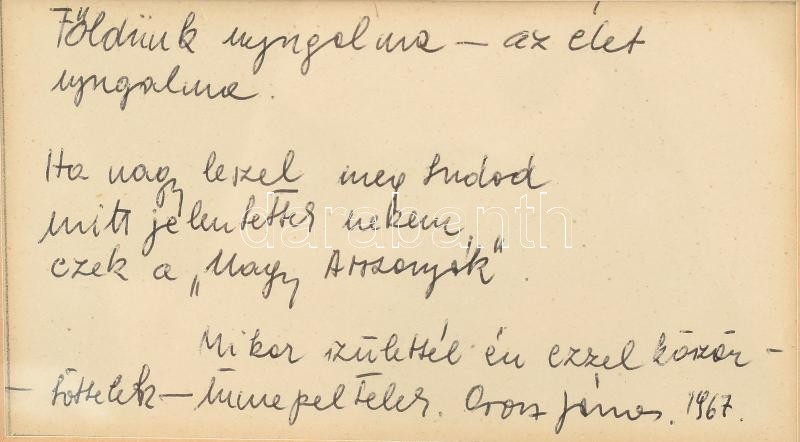 Földünk nyugalma – az élet
nyugalma.
Ha nagy leszel meg tudod
mitt jelentettek nekem
ezek a „Nagy Asszonyok"
Mikor születtél én ezzel köszön-
– töttelek – ünnepeltelek. Orosz János. 1967.
darabanth